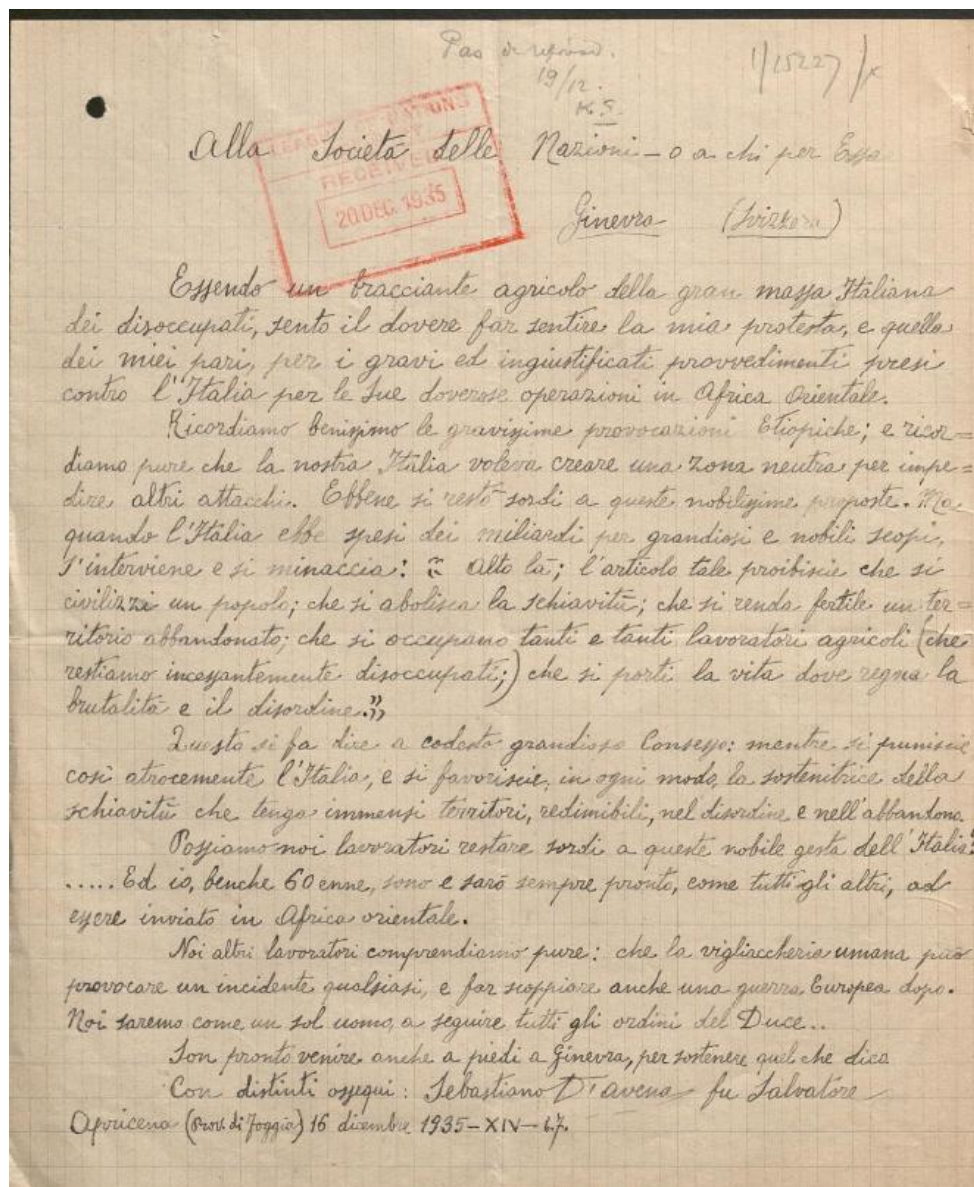 Pas de réponse.
19/12.
K.S.
1/15227/x
LEAGUE OF NATIONS
RECEIVED
20 DEC. 1935
Alla Società delle Nazioni – o a chi per Essa
Ginevra (Svizzera)
Essendo un bracciante agricolo della gran massa Italiana
dei disoccupati, sento il dovere far sentire la mia protesta, e quella
dei miei pari, per i gravi ed ingiustificati provvedimenti presi
contro l'Italia per le sue doverose operazioni in Africa Orientale.
Ricordiamo benissimo le gravissime provocazioni Etiopiche; e ricor=
diamo pure che la nostra Italia voleva creare una zona neutra per impe=
dire altri attacchi. Ebbene si restò sordi a queste nobilissime proposte. Ma
quando l'Italia ebbe spesi dei miliardi per grandiosi e nobili scopi,
s'interviene e si minaccia: " Alto là; l'articolo tale proibiscie che si
civilizzi un popolo; che si abolisca la schiavitù; che si renda fertile un ter=
ritorio abbandonato; che si occupano tanti e tanti lavoratori agricoli (che
restiamo incessantemente disoccupati;) che si porti la vita dove regna la
brutalità e il disordine."
Questo si fa dire a codesto grandioso Consesso: mentre si puniscie
così atrocemente l'Italia, e si favoriscie, in ogni modo, la sostenitrice della
schiavitù che tenga immensi territori, redimibili, nel disordine e nell'abbandono.
Possiamo noi lavoratori restare sordi a queste nobile gesta dell'Italia?
..... Ed io, benche 60 enne, sono e sarò sempre pronto, come tutti gli altri, ad
essere inviato in Africa orientale.
Noi altri lavoratori comprendiamo pure: che la vigliaccheria umana può
provocare un incidente qualsiasi, e far scoppiare anche una guerra Europea dopo.
Noi saremo come un sol uomo, a seguire tutti gli ordini del Duce..
Son pronto venire anche a piedi a Ginevra, per sostenere quel che dico
Con distinti ossequi: Sebastiano D'avena fu Salvatore
Apricena (Prov. di Foggia) 16 dicembre 1935-XIV-